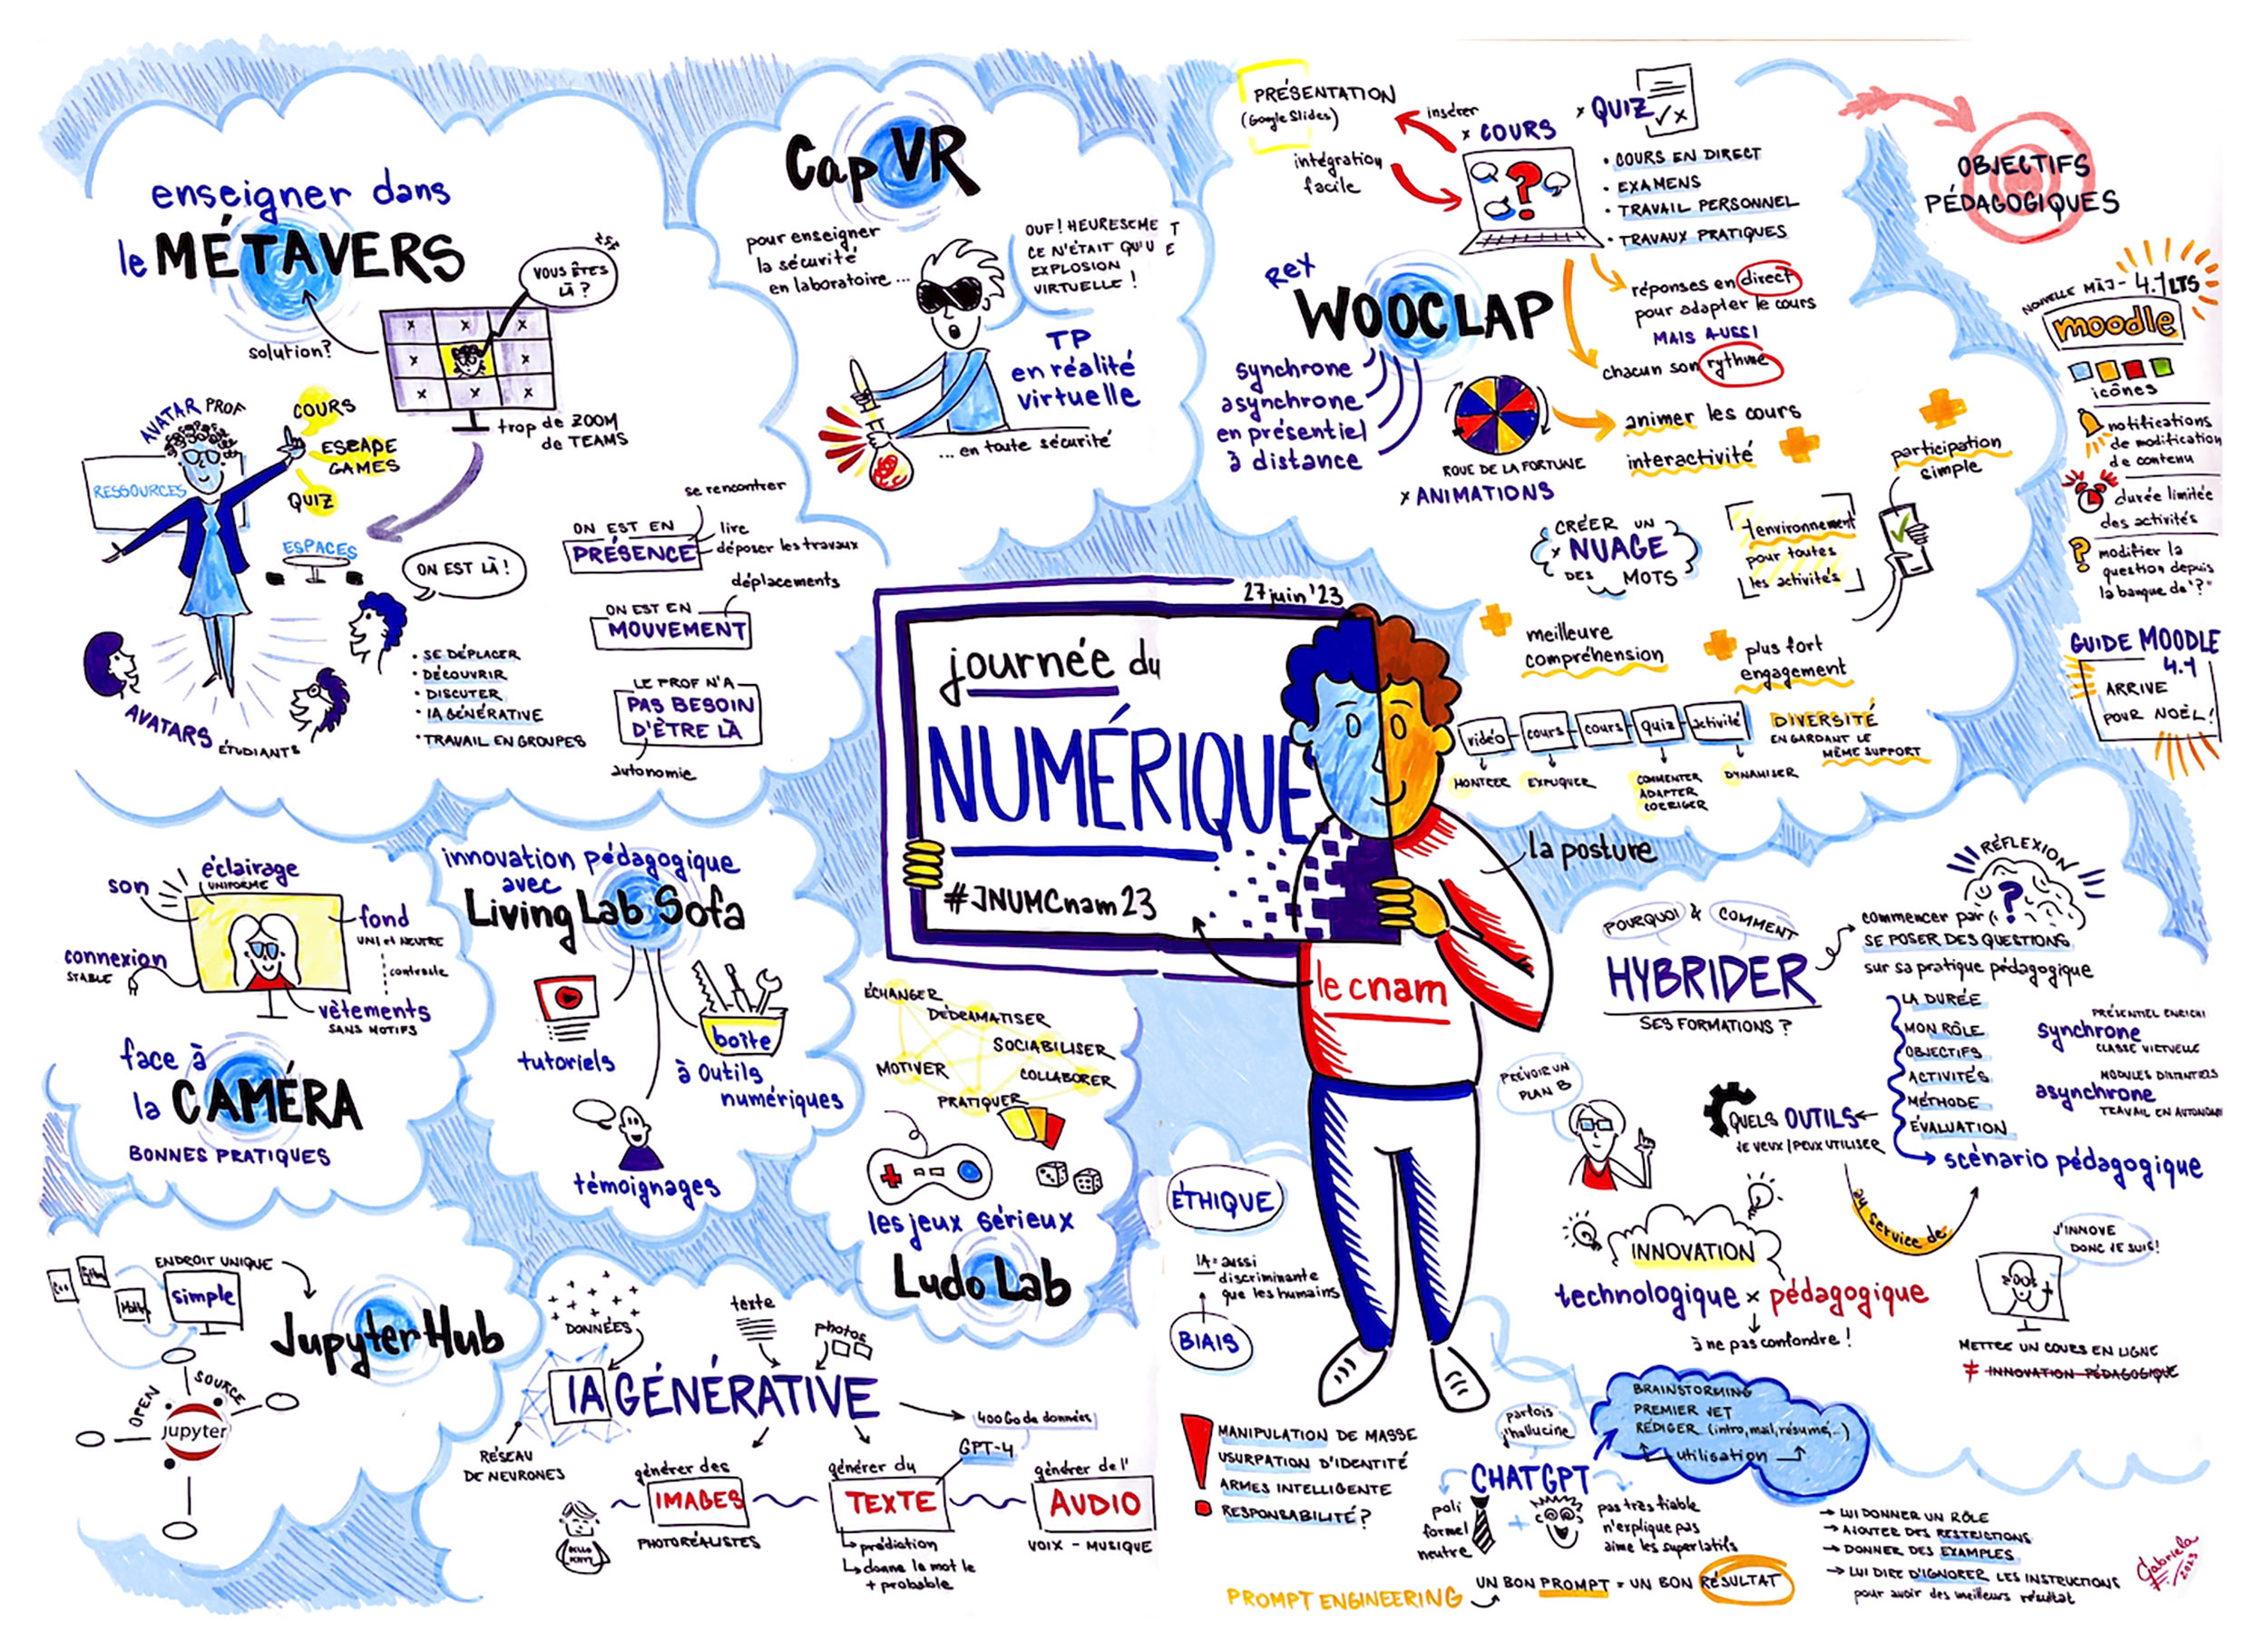 enseigner dans
le MÉTAVERS
solution?
VOUS ÊTES
LÀ ?
trop de ZOOM
de TEAMS
AVATAR PROF
COURS
ESCAPE
GAMES
QUIZ
RESSOURCES
ESPACES
ON EST LÀ !
AVATARS ÉTUDIANTS
• SE DÉPLACER
• DÉCOUVRIR
• DISCUTER
• IA GÉNÉRATIVE
• TRAVAIL EN GROUPES
se rencontrer
ON EST EN
PRÉSENCE
lire
déposer les travaux
déplacements
ON EST EN
MOUVEMENT
LE PROF N'A
PAS BESOIN
D'ÊTRE LÀ
autonomie
Cap VR
pour enseigner
la sécurité
en laboratoire ...
OUF ! HEURESEME T
CE N'ÉTAIT QU'U E
EXPLOSION
VIRTUELLE !
TP
en réalité
virtuelle
... en toute sécurité
PRÉSENTATION
(Google Slides)
insérer
intégration
facile
x COURS
x QUIZ
• COURS EN DIRECT
• EXAMENS
• TRAVAIL PERSONNEL
• TRAVAUX PRATIQUES
REX
WOOCLAP
synchrone
asynchrone
en présentiel
à distance
réponses en direct
pour adapter le cours
MAIS AUSSI
chacun son rythme
ROUE DE LA FORTUNE
x ANIMATIONS
animer les cours
interactivité
participation
simple
CRÉER UN
x NUAGE
DES MOTS
1 environnement
pour toutes
les activités
meilleure
compréhension
plus fort
engagement
vidéo
cours
cours
quiz
activité
MONTRER
EXPLIQUER
COMMENTER
ADAPTER
CORRIGER
DYNAMISER
DIVERSITÉ
EN GARDANT LE
MÊME SUPPORT
OBJECTIFS
PÉDAGOGIQUES
NOUVELLE MÀJ - 4.1 LTS
moodle
icônes
notifications
de modification
de contenu
durée limitée
des activités
modifier la
question depuis
la banque de "?"
GUIDE MOODLE
4.1
ARRIVE
POUR NOËL!
27 juin '23
journée du
NUMÉRIQUE
#JNUMCnam23
le cnam
la posture
son
éclairage
UNIFORME
fond
UNI et NEUTRE
contraste
connexion
STABLE
vêtements
SANS MOTIFS
face à
la CAMÉRA
BONNES PRATIQUES
innovation pédagogique
avec
Living Lab Sofa
tutoriels
boîte
à outils
numériques
témoignages
ÉCHANGER
DÉDRAMATISER
SOCIABILISER
MOTIVER
COLLABORER
PRATIQUER
les jeux sérieux
Ludo Lab
POURQUOI & COMMENT
HYBRIDER
SES FORMATIONS ?
RÉFLEXION
?
commencer par
SE POSER DES QUESTIONS
sur sa pratique pédagogique
LA DURÉE
MON RÔLE
OBJECTIFS
ACTIVITÉS
MÉTHODE
ÉVALUATION
scénario pédagogique
PRÉSENTIEL ENRICHI
synchrone
CLASSE VIRTUELLE
MODULES DISTANTIELS
asynchrone
TRAVAIL EN AUTONOMI
PRÉVOIR UN
PLAN B
QUELS OUTILS
JE VEUX / PEUX UTILISER
au service de
INNOVATION
technologique x pédagogique
à ne pas confondre !
J'INNOVE
DONC JE SUIS!
METTRE UN COURS EN LIGNE
≠ INNOVATION PÉDAGOGIQUE
ENDROIT UNIQUE
simple
Jupyter Hub
OPEN SOURCE
jupyter
DONNÉES
texte
photos
IA GÉNÉRATIVE
RÉSEAU
DE NEURONES
400 Go de données
GPT-4
générer des
IMAGES
PHOTORÉALISTES
HELLO
KITTY
générer du
TEXTE
prédiction
donne le mot le
+ probable
générer de l'
AUDIO
VOIX - MUSIQUE
ÉTHIQUE
IA = aussi
discriminante
que les humains
BIAIS
MANIPULATION DE MASSE
USURPATION D'IDENTITÉ
ARMES INTELLIGENTE
RESPONSABILITÉ ?
parfois
j'hallucine
CHATGPT
poli
formel
neutre
pas très fiable
n'explique pas
aime les superlatifs
BRAINSTORMING
PREMIER JET
RÉDIGER (intro, mail, résumé, ..)
utilisation
PROMPT ENGINEERING
UN BON PROMPT = UN BON RÉSULTAT
→ LUI DONNER UN RÔLE
→ AJOUTER DES RESTRICTIONS
→ DONNER DES EXAMPLES
→ LUI DIRE D'IGNORER LES INSTRUCTIONS
pour avoir des meilleurs résultat
Gabriela
2023